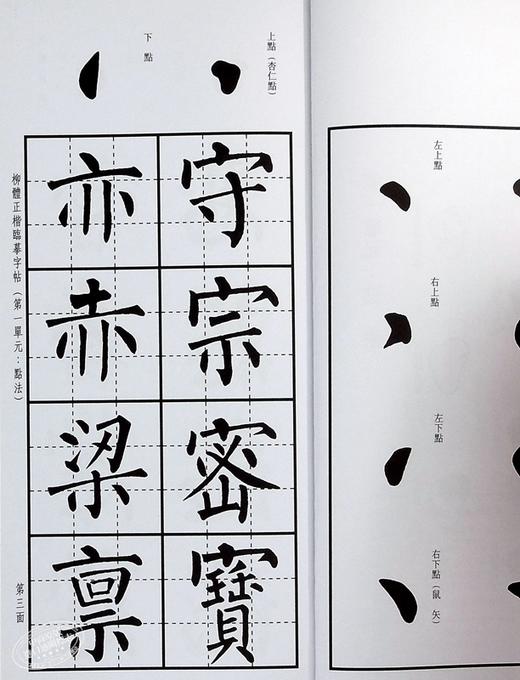 左上點
右上點
左下點
右下點（鼠矢）
上點（杏仁點）
下點
守宗密寶
亦赤梁禀
柳體正楷臨摹字帖（第一單元：點法）
第三面